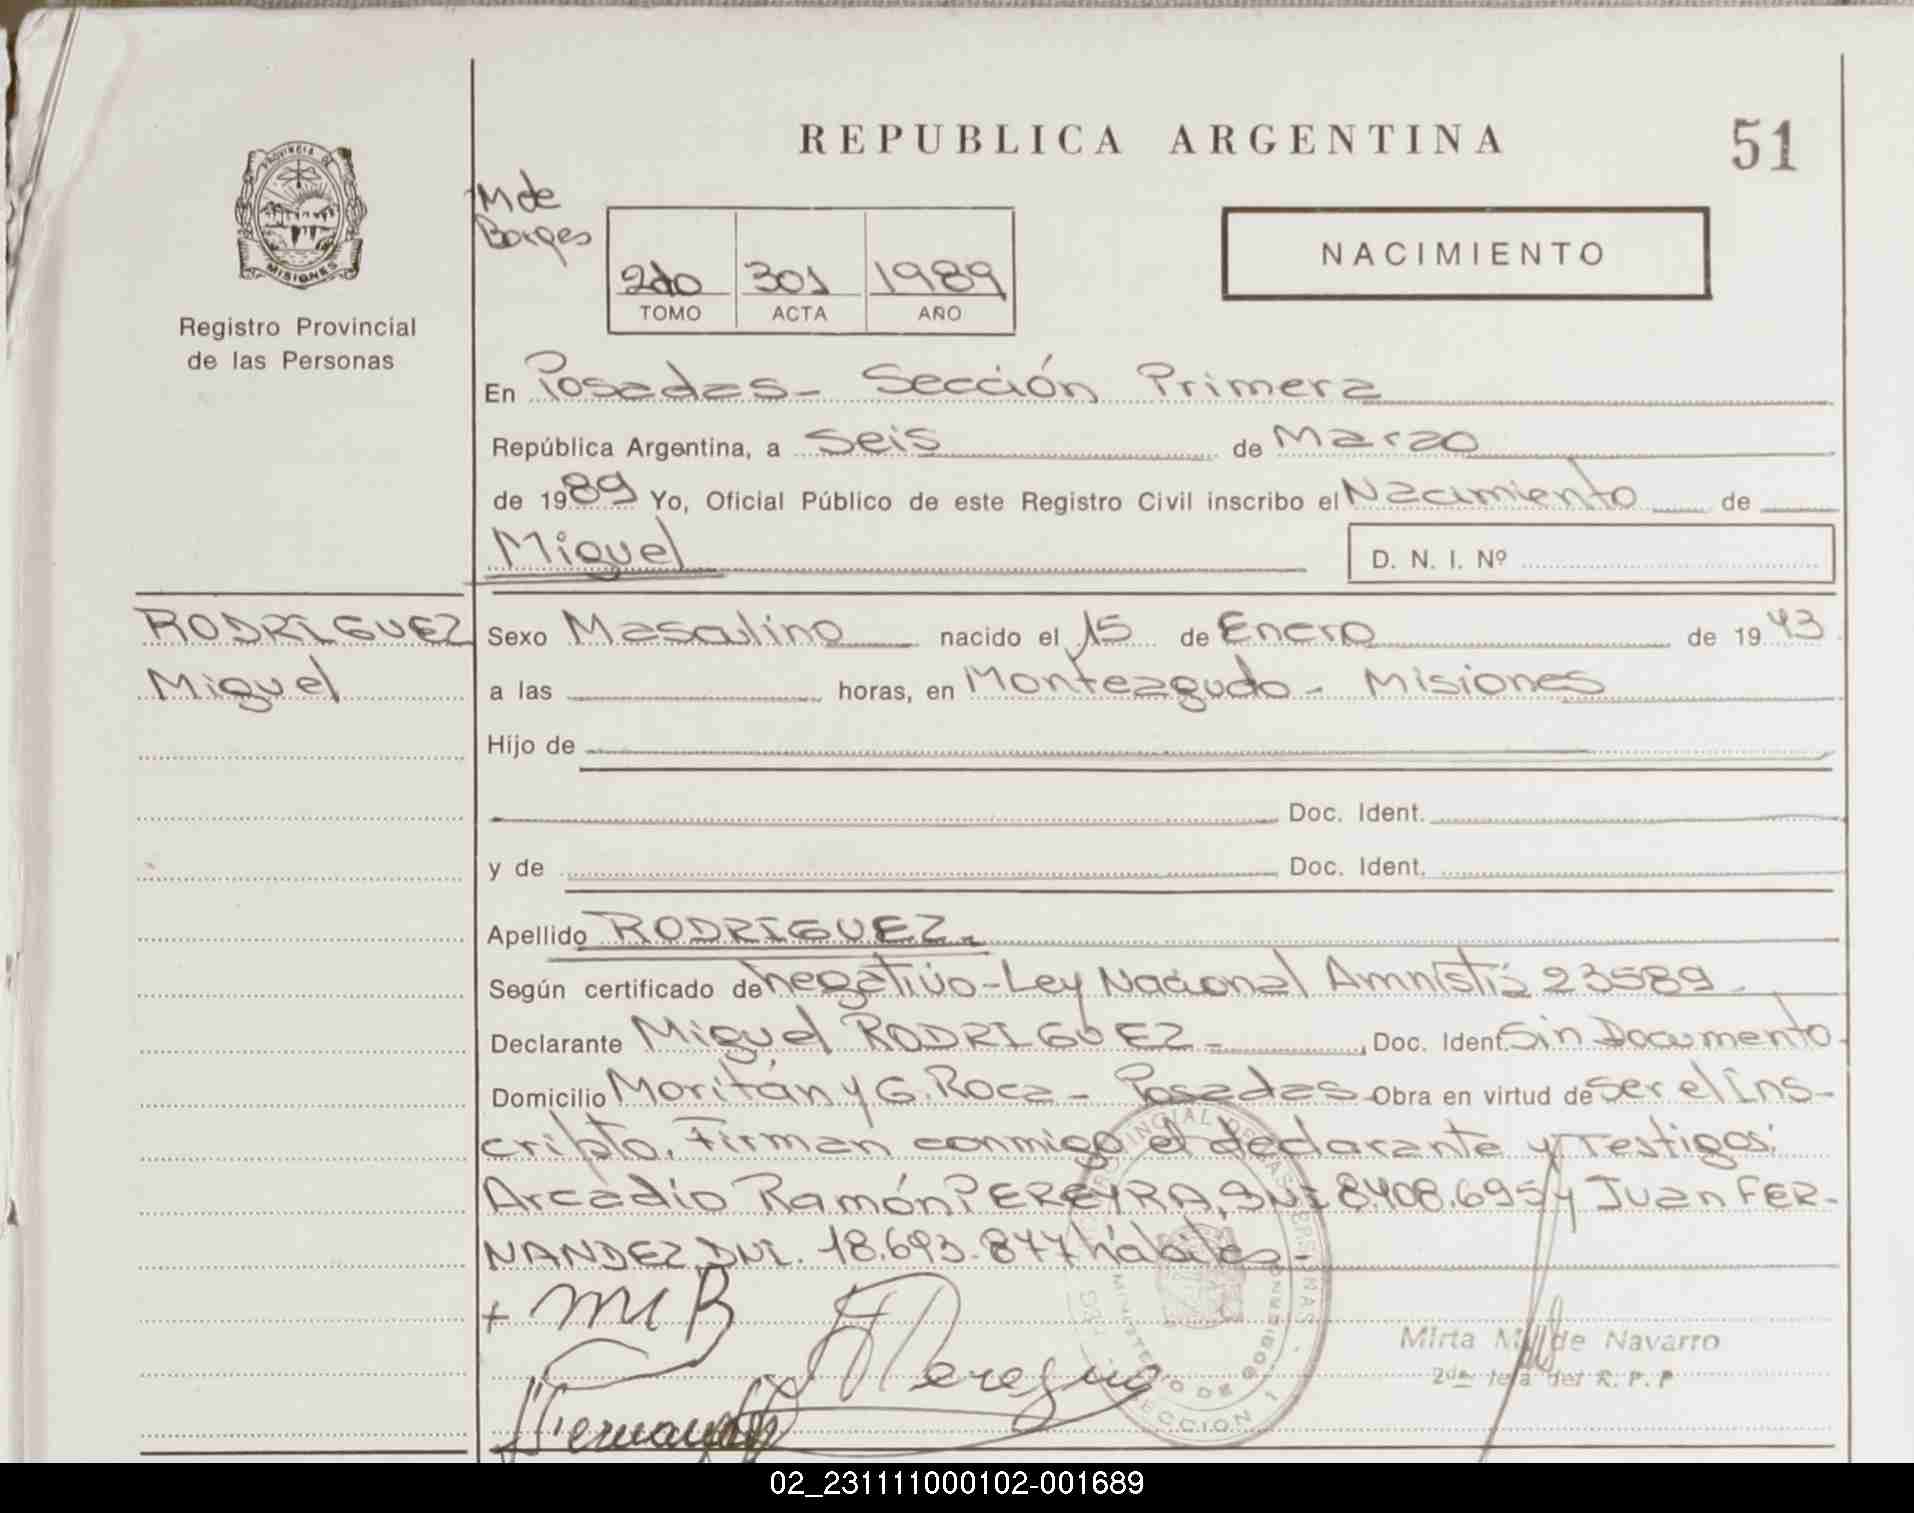 REPUBLICA ARGENTINA
51
PROVINCIA DE
MISIONES
Registro Provincial
de las Personas
M de
Borges
2do 301 1989
TOMO ACTA AÑO
NACIMIENTO
En Posadas - Sección Primera
República Argentina, a Seis de Marzo
de 1989 Yo, Oficial Público de este Registro Civil inscribo el Nacimiento de
Miguel
D. N. I. Nº
RODRIGUEZ
Miguel
Sexo Masculino nacido el 15 de Enero de 1943
a las horas, en Monteagudo - Misiones
Hijo de
Doc. Ident.
y de Doc. Ident.
Apellido RODRIGUEZ.
Según certificado de negativo - Ley Nacional Amnistía 23589
Declarante Miguel RODRIGUEZ - Doc. Ident. Sin Documento.
Domicilio Moritán y G. Roca - Posadas Obra en virtud de ser el Ins-
cripto. Firman conmigo el declarante y Testigos:
Arcadio Ramón PEREYRA, DNI 8.408.695 y Juan FER-
NANDEZ DNI. 18.693.877 hábiles -
+ MR
A Pereyra
Fernandez
PROVINCIAL DE LAS PERSONAS
MINISTERIO DE GOBIERNO
SECCION 1
Mirta M. de Navarro
2da Jefa del R. P. P
02_231111000102-001689